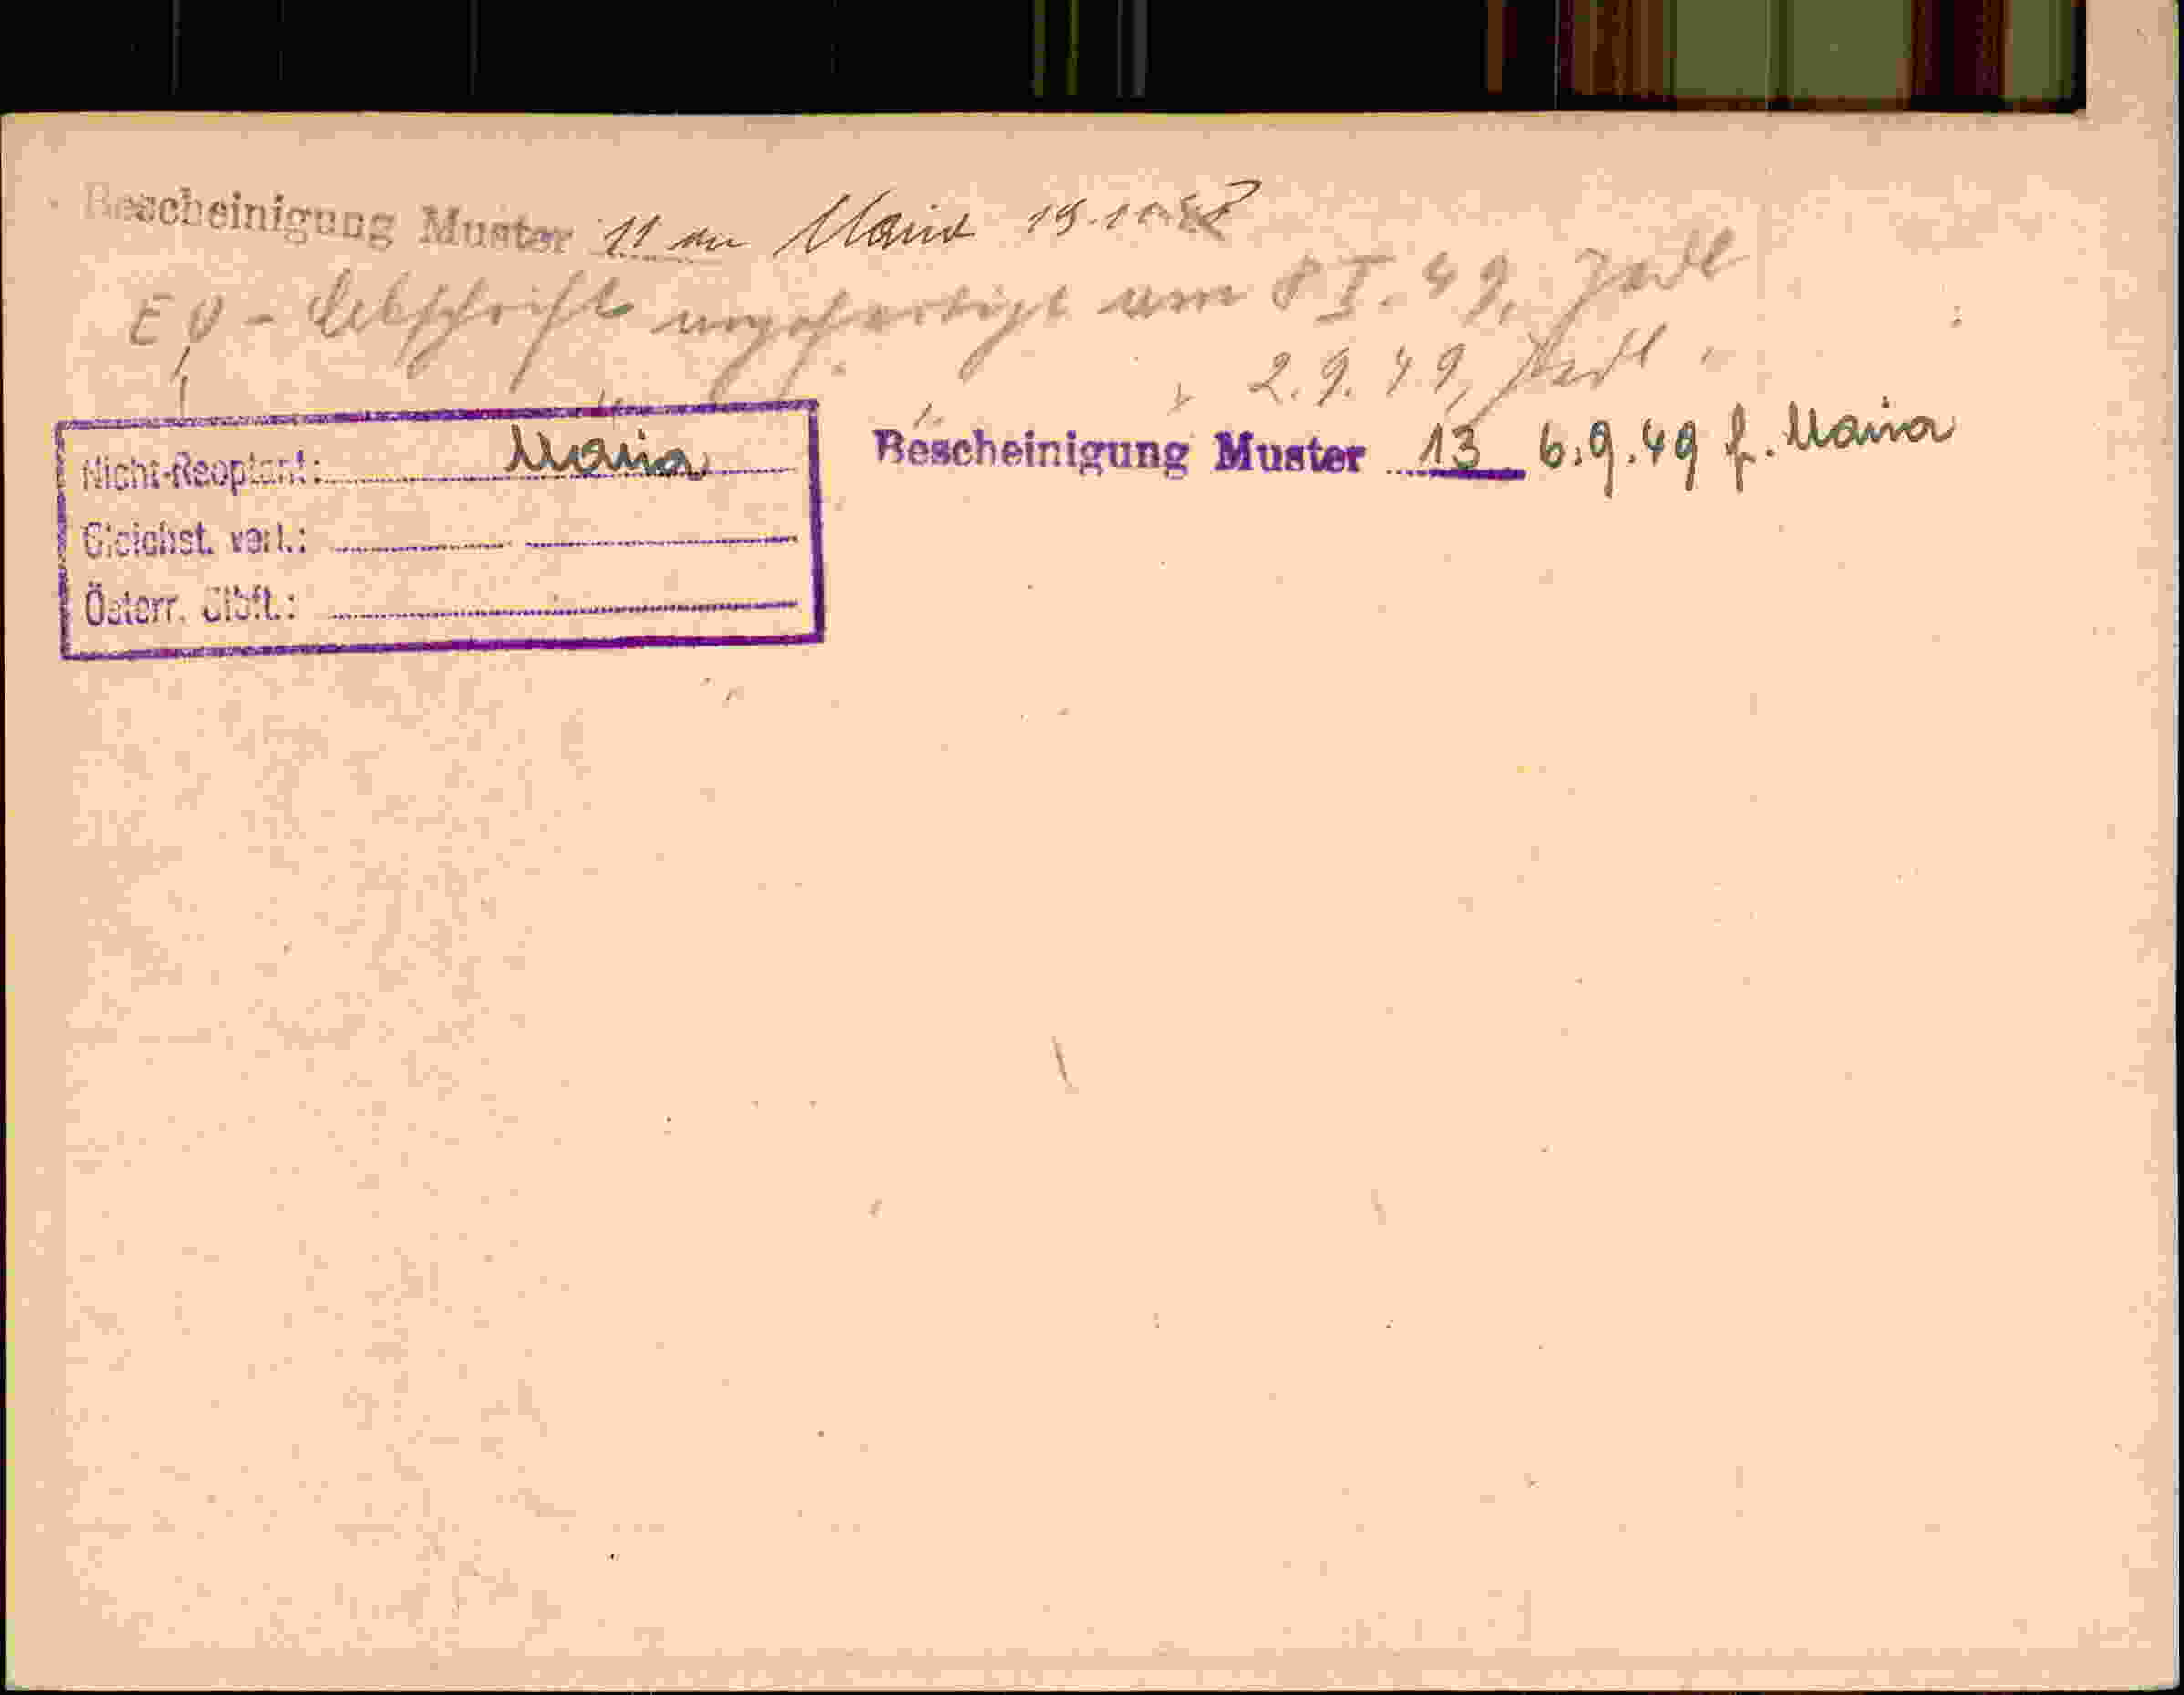 Bescheinigung Muster 11 an Maria 19.10.48
EO - Abschrift angefertigt am 8 I. 49,
2.9.49,
Nicht-Reoptant: Maria
Bescheinigung Muster 13 6.9.49 f. Maria
Gleichst. verl.:
Österr.